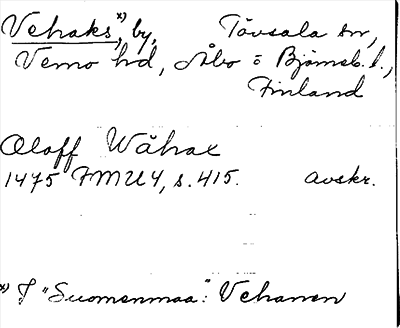 Vehaks x), by, Tövsala sn,
Vemo hd, Åbo o Björneb. l.,
Finland
Olaff Wåhax
1475 FMU 4, s. 415. avskr.
x) I "Suomenmaa": Vehanen